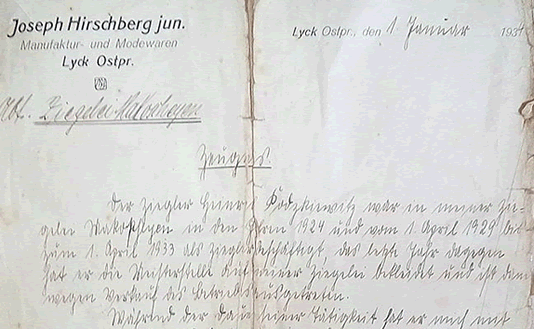 Joseph Hirschberg jun.
Manufaktur- und Modewaren
Lyck Ostpr.
Lyck Ostpr., den 1. Januar 1934
Abt. Ziegelei
Zeugnis
Der Ziegler Heinr. war in meiner Zie-
gelei in den Jahren 1924 und vom 1. April 1929 bis
zum 1. April 1933 als Ziegler beschäftigt, das letzte Jahr dagegen
hat er die Meisterstelle auf meiner Ziegelei bekleidet und ist dann
wegen Verkauf des Betriebs ausgetreten.
Während der Dauer seiner Tätigkeit hat er mich mit